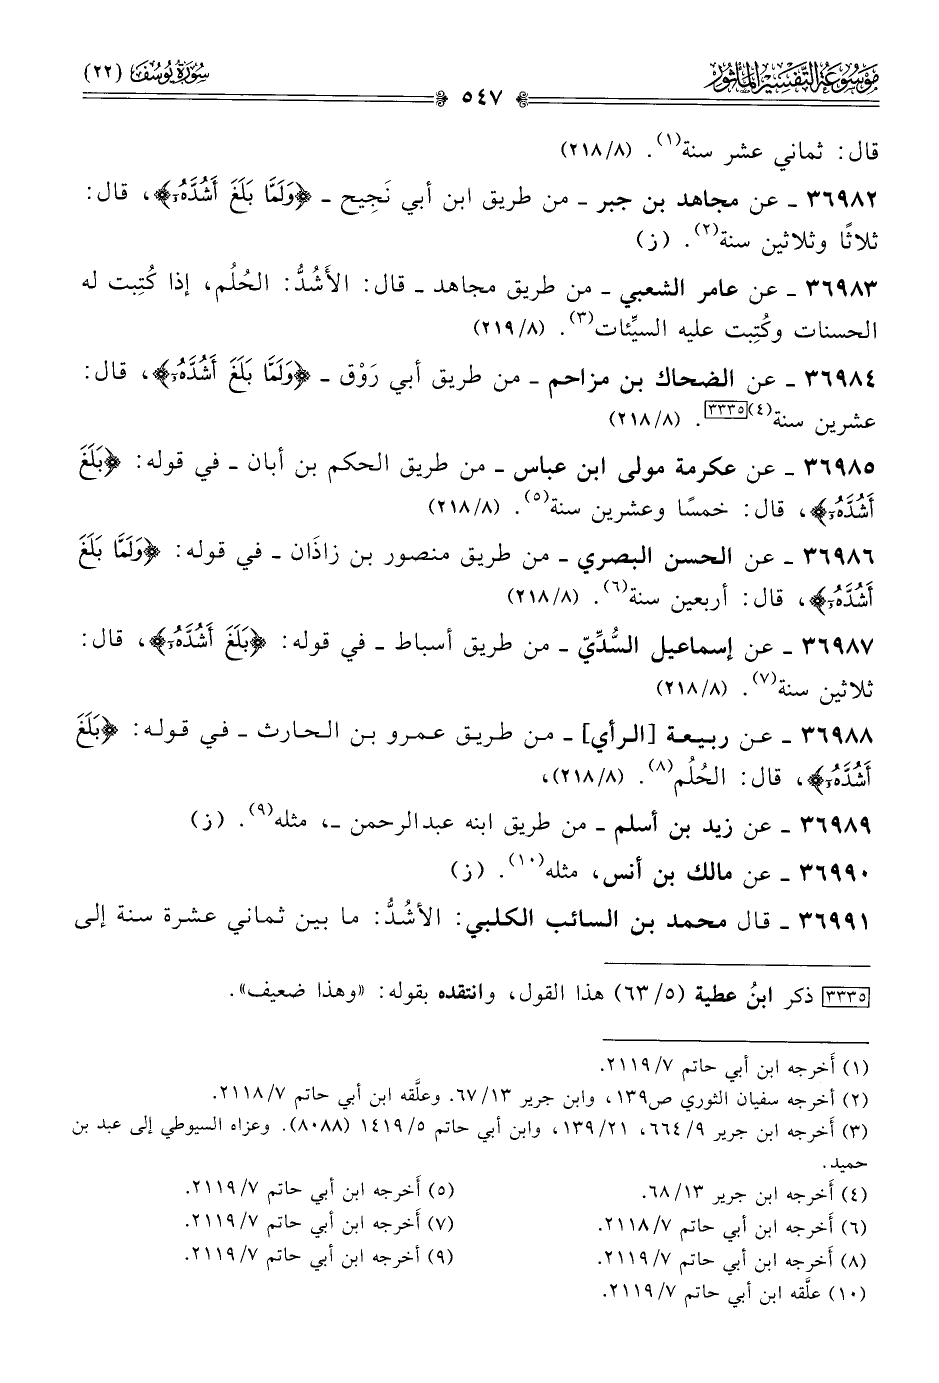 مَوْسُوعَةُ التَّفْسِيْرِ المَأْثُورِ
٥٤٧
سُورَةُ يُوسُفَ (٢٢)
قال: ثماني عشر سنة(١). (٢١٨/٨)
٣٦٩٨٢ ـ عن مجاهد بن جبر ـ من طريق ابن أبي نَجِيح ـ ﴿وَلَمَّا بَلَغَ أَشُدَّهُۥٓ﴾، قال:
ثلاثًا وثلاثين سنة(٢). (ز)
٣٦٩٨٣ ـ عن عامر الشعبي ـ من طريق مجاهد ـ قال: الأَشُدُّ: الحُلُم، إذا كُتِبت له
الحسنات وكُتِبت عليه السيِّئات(٣). (٢١٩/٨)
٣٦٩٨٤ ـ عن الضحاك بن مزاحم ـ من طريق أبي رَوْق ـ ﴿وَلَمَّا بَلَغَ أَشُدَّهُۥٓ﴾، قال:
عشرين سنة(٤)[٣٣٣٥]. (٢١٨/٨)
٣٦٩٨٥ ـ عن عكرمة مولى ابن عباس ـ من طريق الحكم بن أبان ـ في قوله: ﴿بَلَغَ
أَشُدَّهُۥٓ﴾، قال: خمسًا وعشرين سنة(٥). (٢١٨/٨)
٣٦٩٨٦ ـ عن الحسن البصري ـ من طريق منصور بن زاذَان ـ في قوله: ﴿وَلَمَّا بَلَغَ
أَشُدَّهُۥٓ﴾، قال: أربعين سنة(٦). (٢١٨/٨)
٣٦٩٨٧ ـ عن إسماعيل السُّدِّيّ ـ من طريق أسباط ـ في قوله: ﴿بَلَغَ أَشُدَّهُۥٓ﴾، قال:
ثلاثين سنة(٧). (٢١٨/٨)
٣٦٩٨٨ ـ عن ربيعة [الرأي] ـ من طريق عمرو بن الحارث ـ في قوله: ﴿بَلَغَ
أَشُدَّهُۥٓ﴾، قال: الحُلُم(٨). (٢١٨/٨)،
٣٦٩٨٩ ـ عن زيد بن أسلم ـ من طريق ابنه عبدالرحمن ـ، مثله(٩). (ز)
٣٦٩٩٠ ـ عن مالك بن أنس، مثله(١٠). (ز)
٣٦٩٩١ ـ قال محمد بن السائب الكلبي: الأشُدُّ: ما بين ثماني عشرة سنة إلى
[٣٣٣٥] ذكر ابنُ عطية (٦٣/٥) هذا القول، وانتقده بقوله: «وهذا ضعيف».
(١) أخرجه ابن أبي حاتم ٢١١٩/٧.
(٢) أخرجه سفيان الثوري ص١٣٩، وابن جرير ٦٧/١٣. وعلَّقه ابن أبي حاتم ٢١١٨/٧.
(٣) أخرجه ابن جرير ٦٦٤/٩، ١٣٩/٢١، وابن أبي حاتم ١٤١٩/٥ (٨٠٨٨). وعزاه السيوطي إلى عبد بن
حميد.
(٤) أخرجه ابن جرير ٦٨/١٣.
(٥) أخرجه ابن أبي حاتم ٢١١٩/٧.
(٦) أخرجه ابن أبي حاتم ٢١١٨/٧.
(٧) أخرجه ابن أبي حاتم ٢١١٩/٧.
(٨) أخرجه ابن أبي حاتم ٢١١٩/٧.
(٩) أخرجه ابن أبي حاتم ٢١١٩/٧.
(١٠) علَّقه ابن أبي حاتم ٢١١٩/٧.